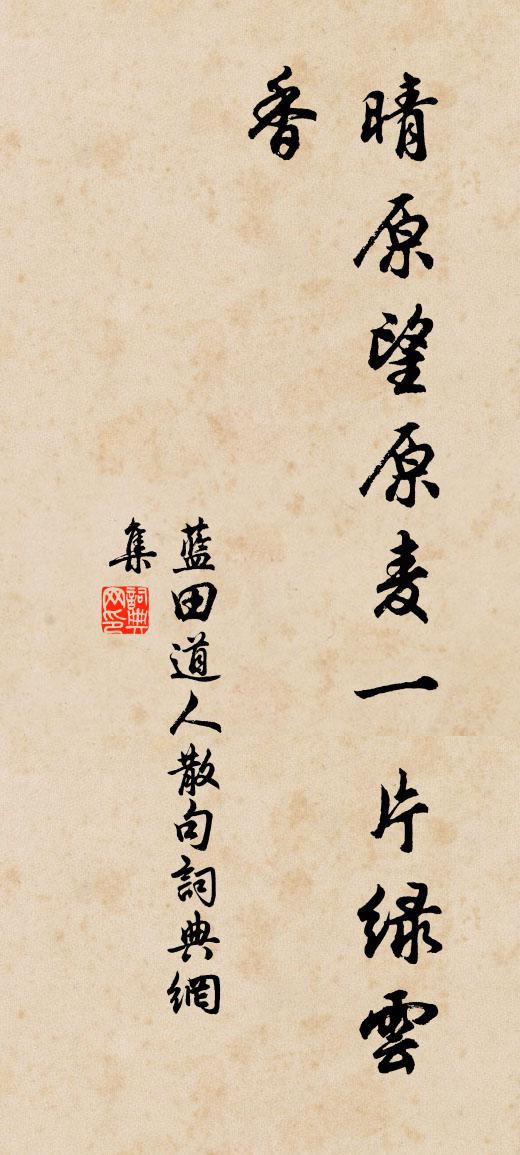 晴原望原麦一片绿雲
香
藍田道人散句詞典網
集
詞典
网印